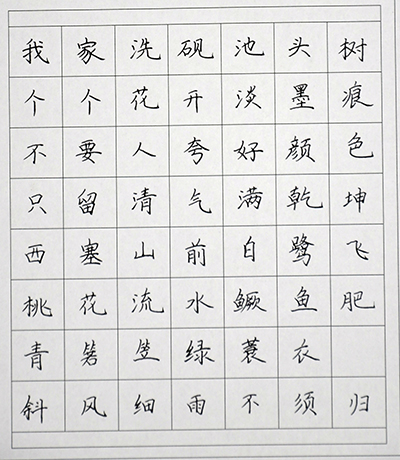 我家洗砚池头树
个个花开淡墨痕
不要人夸好颜色
只留清气满乾坤
西塞山前白鹭飞
桃花流水鳜鱼肥
青箬笠绿蓑衣
斜风细雨不须归